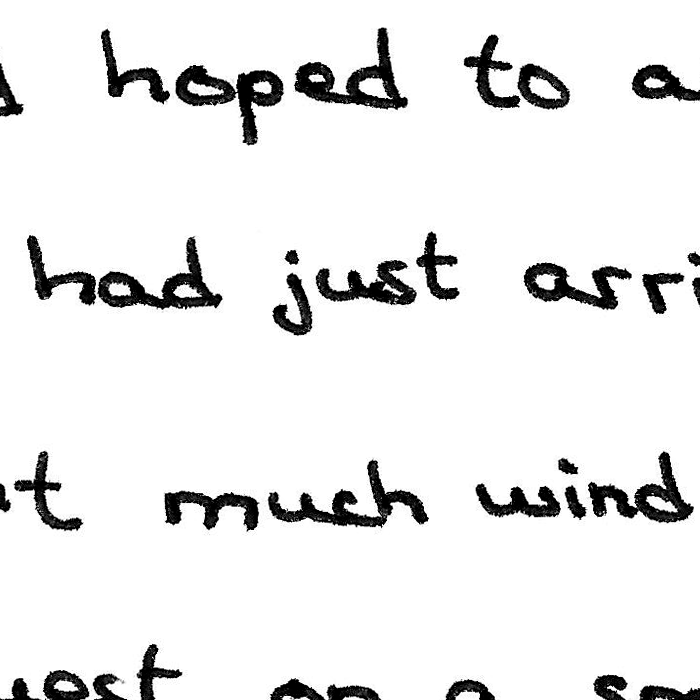 hoped to a
had just arri
t much wind
on a